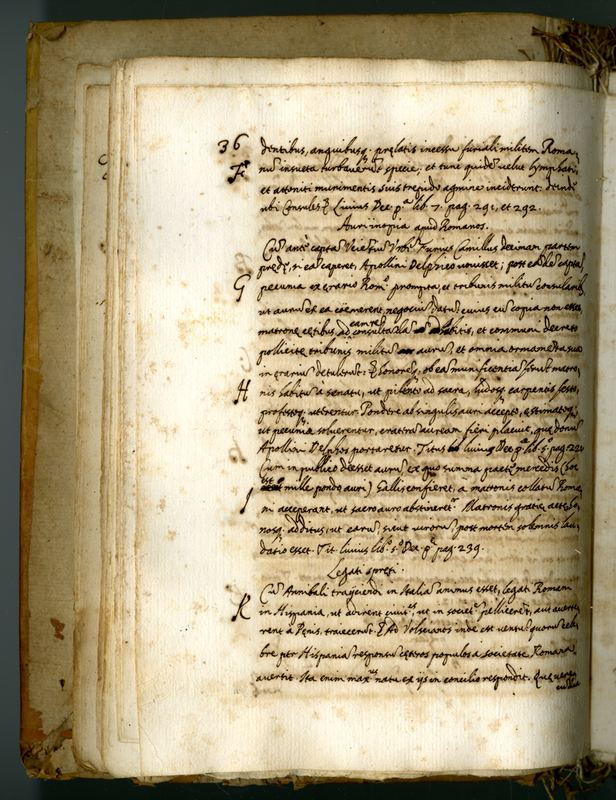 36
dentibus, anguibusq. prelatis incessu furiali militem Roma,
F
nu insueta turbaverut specie, et tunc quide velut lymphati,
et attoniti munimentis suis trepido agmine inciderunt. deinde
ubi Consules &. Livius Dec. pa. lib. 7. pag. 291, et 292.
Auri inopia apud Romanos.
Cu ante capta Veietiu Urbe Furius Camillus decimam partem
prede, si ea caperet, Apollini Delphico vovisset; post eade capta,
G
pecunia ex erario Romo. prompta, et tribunis militu consularib.
ut auru ex ea coemerent, negociu datu, cuius cu copia non esset,
matrone cetibus ad ea re consulta habitis, et communi decreto
pollicite tribunis militu auru, et omnia ornamenta sua
in erariu detulerut: & honoreq. ob ea munificentia ferut matro,
H
nis habitu à senatu, ut pilento ad sacra, ludosq. carpentis festo,
profestoq. uterentur. Pondere ab singulis auri accepto, estimatoq.
ut pecunie solverentur, cratera auream fieri placuit, que donu
Apollini Delphos portaretur. Titus Livius Dec. pa. lib. 5o. pag. 224
Cum in publico deesset auru, ex quo summa pacte mercedis (hoc
I
est mille pondo auri) Gallis confieret, à matronis collatu Roma,
ni acceperant, ut sacro auro abstineretr. Matronis gratie acte, ho,
nosq. additus, ut earu, sicut viroru, post mortem solemnis lau,
datio esset. Tit. Livius lib. 5o. Dec. pa. pag. 239.
Legati spreti.
Cu Annibali traijciendi in Italia animus esset, legati Romani
K
in Hispania, ut adirent civites, ut in societe. pellicerent, aut averte,
rent à Penis, traiecerut. & Ad Volscianos inde est ventu quoru cele,
bre per Hispania responsu ceteros populos à societate Romana
avertit. Ita enim maxus natu ex ijs in concilio respondit. Que verec